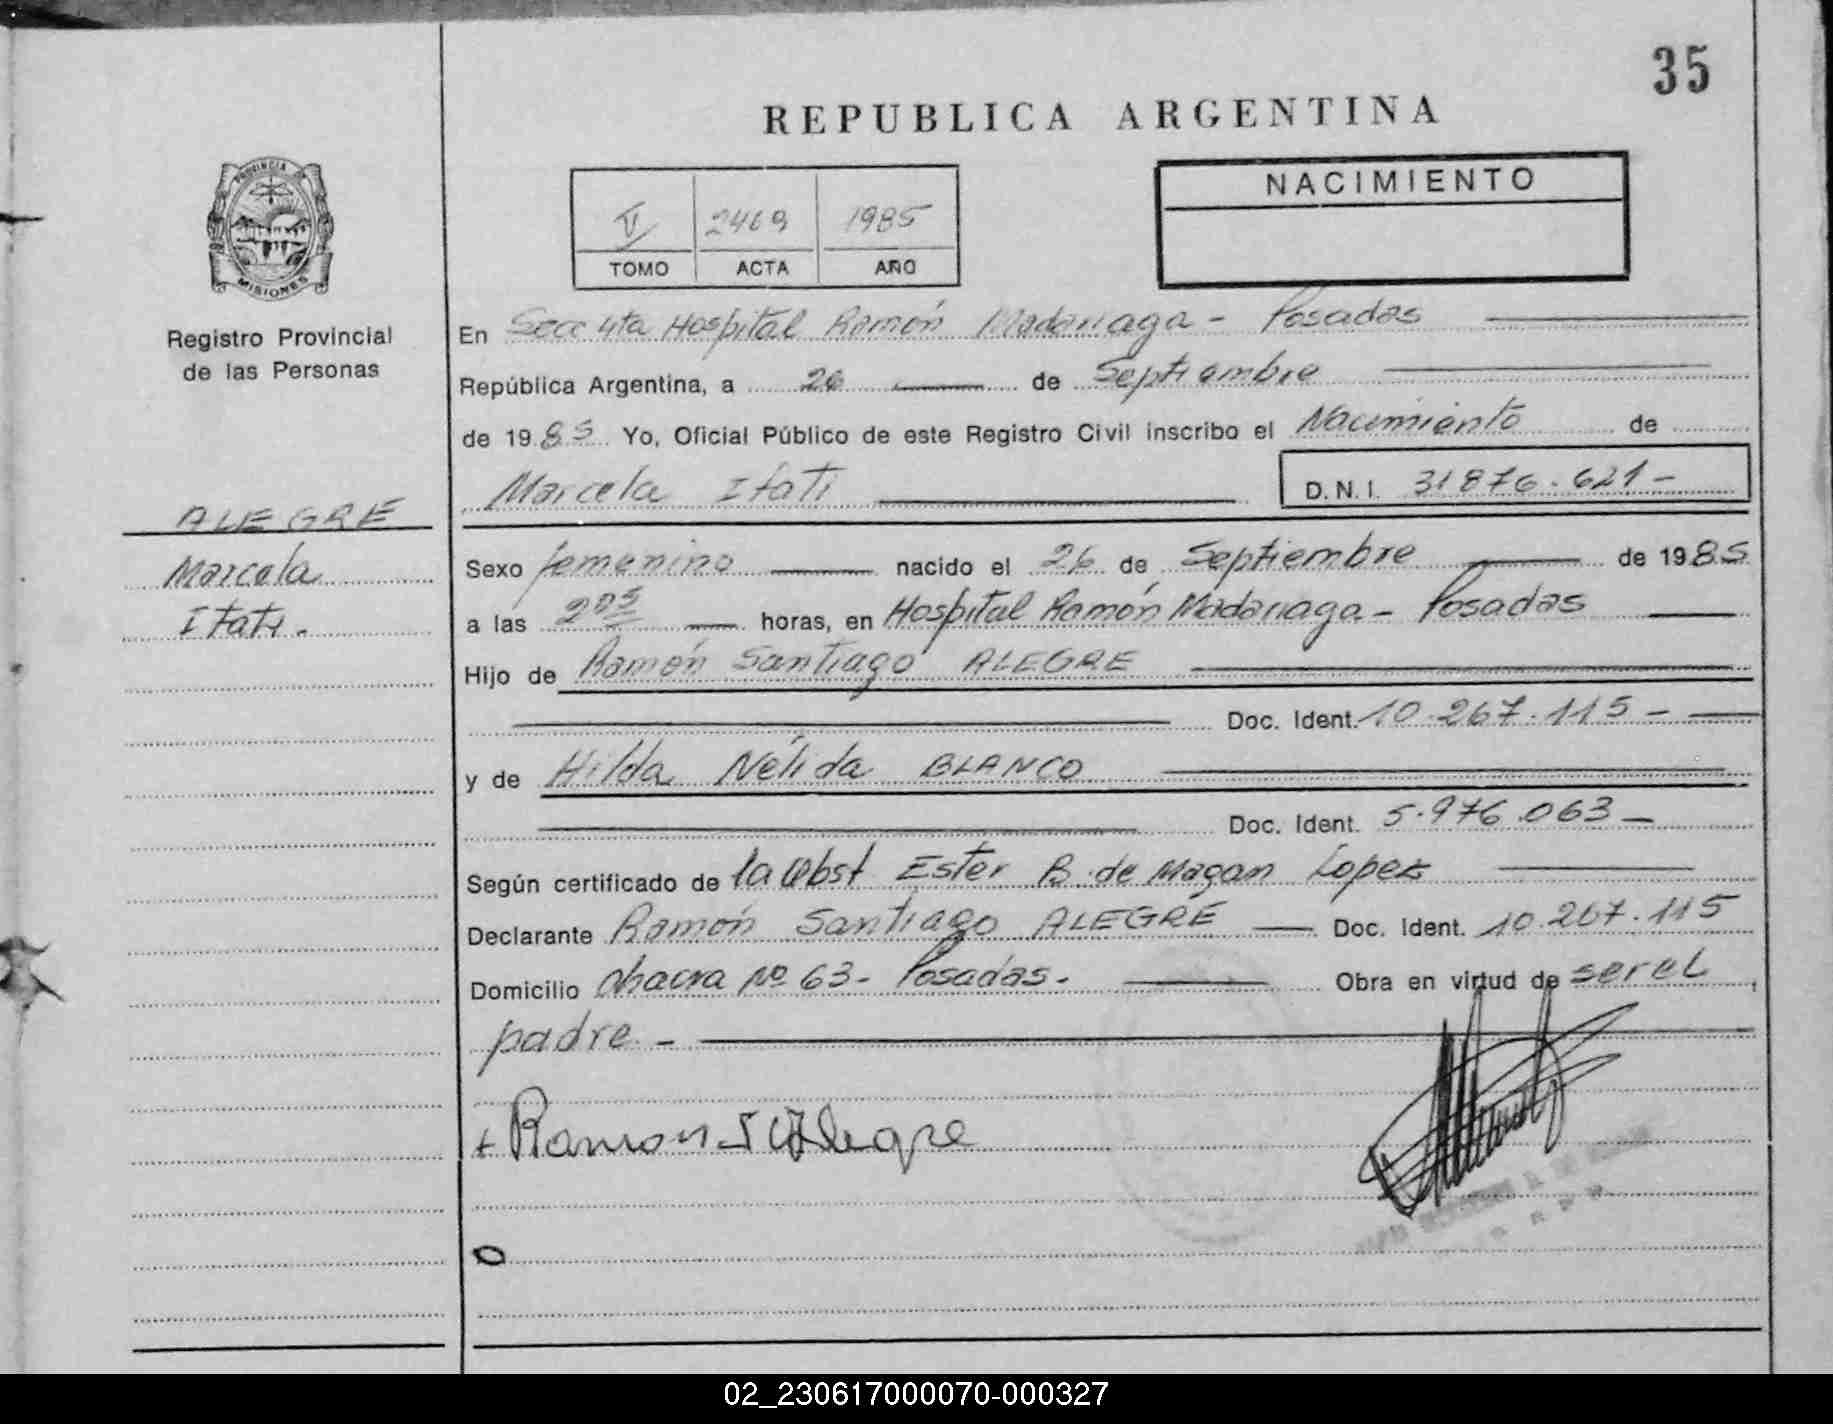 35
REPUBLICA ARGENTINA
PROVINCIA DE
MISIONES
Registro Provincial
de las Personas
V 2469 1985
TOMO ACTA AÑO
NACIMIENTO
En Secc 4ta Hospital Ramón Madariaga - Posadas
República Argentina, a 26 de Septiembre
de 1985 Yo, Oficial Público de este Registro Civil inscribo el Nacimiento de
Marcela Itatí D.N.I. 31876.621-
ALEGRE
Marcela
Itatí.
Sexo femenino nacido el 26 de Septiembre de 1985
a las 205 horas, en Hospital Ramón Madariaga - Posadas
Hijo de Ramón Santiago ALEGRE
Doc. Ident. 10.267.115-
y de Hilda Nélida BLANCO
Doc. Ident. 5.976.063-
Según certificado de la Obst Ester B. de Magan Lopez
Declarante Ramón Santiago ALEGRE Doc. Ident. 10.267.115
Domicilio chacra Nº 63- Posadas. Obra en virtud de ser el
padre.-
Ramon S Alegre
02_230617000070-000327